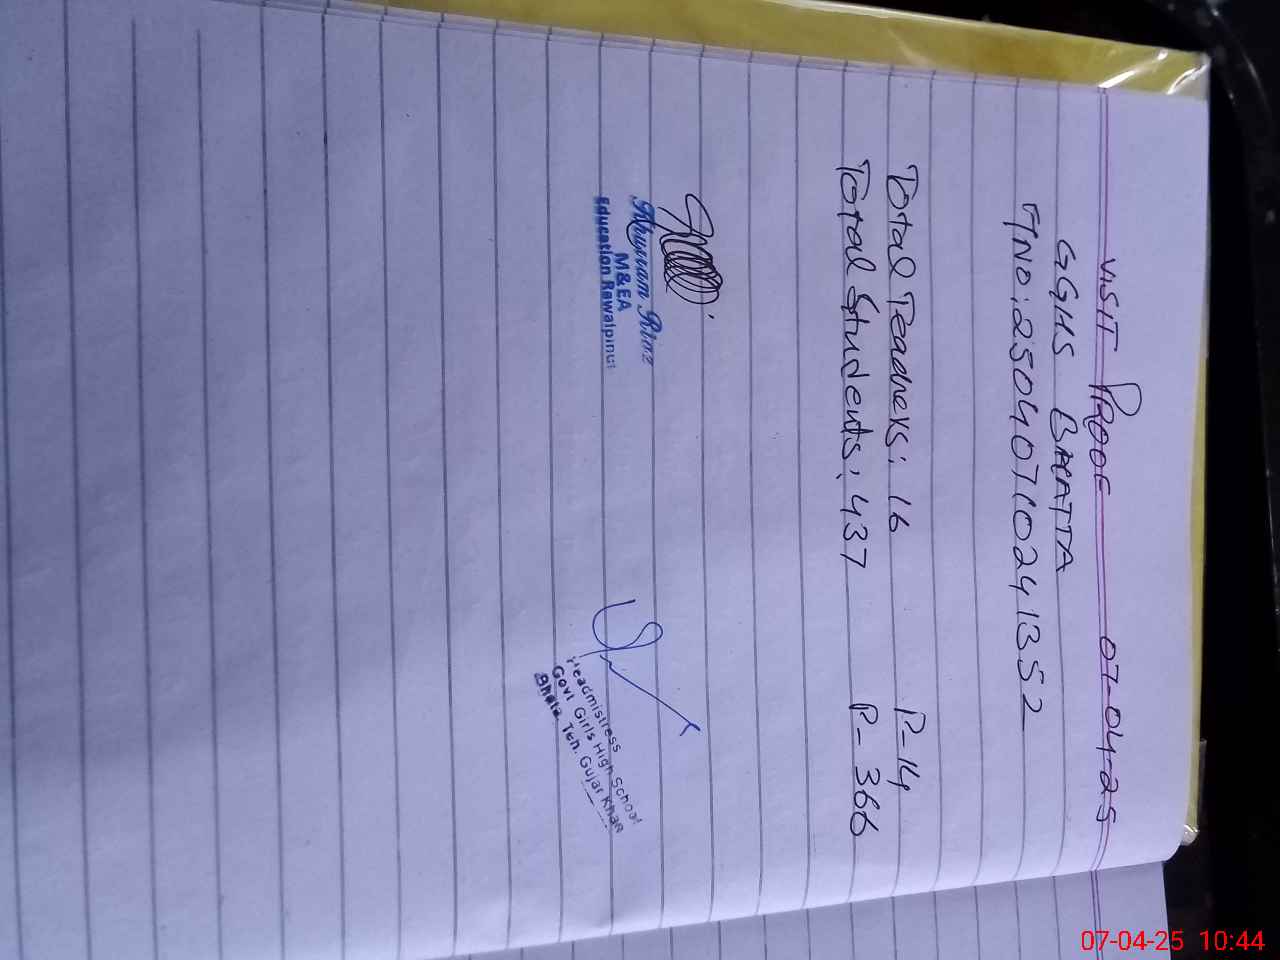 VISIT PROOF 07-04-25
GGHS BHATTA
T/NO: 25040710241352
Total Teachers: 16 P-14
Total Students: 437 P-366
Khurram Riaz
M&EA
Education Rawalpindi
Headmistress
Govt Girls High School
Bhata, Teh. Gujar Khan
07-04-25 10:44